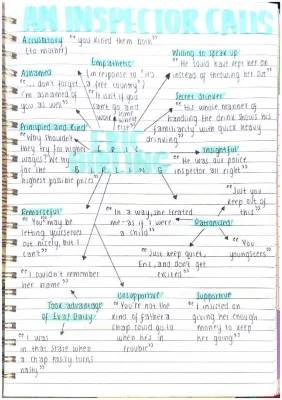 AN INSPECTOR CALLS
Accusatory
"you killed them both"
(to mother)
Empathetic
(in response to "it's
a free country")
"It isn't if you
can't go and
work
some
where
else"
Willing to speak up
"He could have kept her on
instead of throwing her out"
Ashamed
"... don't forget
I'm ashamed of
you as well"
Secret drinker
"His whole manner of
handling the drink shows his
familiarity with quick heavy
drinking"
Principled and Kind
"Why shouldn't
they try for higher
wages? We try
for the
highest possible prices"
ERIC
BIRLING
Insightful
"He was our police
inspector all right"
"Just you
keep out of
this"
Remorseful
"You may be
letting yourselves
out nicely, but I
can't"
"In a way, she treated
me - as if I were
a child"
Patronised
"You
youngsters"
"Just keep quiet,
Eric, and don't get
excited"
"I couldn't remember
her name"
Took advantage
of Eva/Daisy
"I was
in that state when
a chap easily turns
nasty"
Unsupportive
"You're not the
kind of father a
chap could go to
when he's in
trouble"
Supportive
"I insisted on
giving her enough
money to keep
her going"